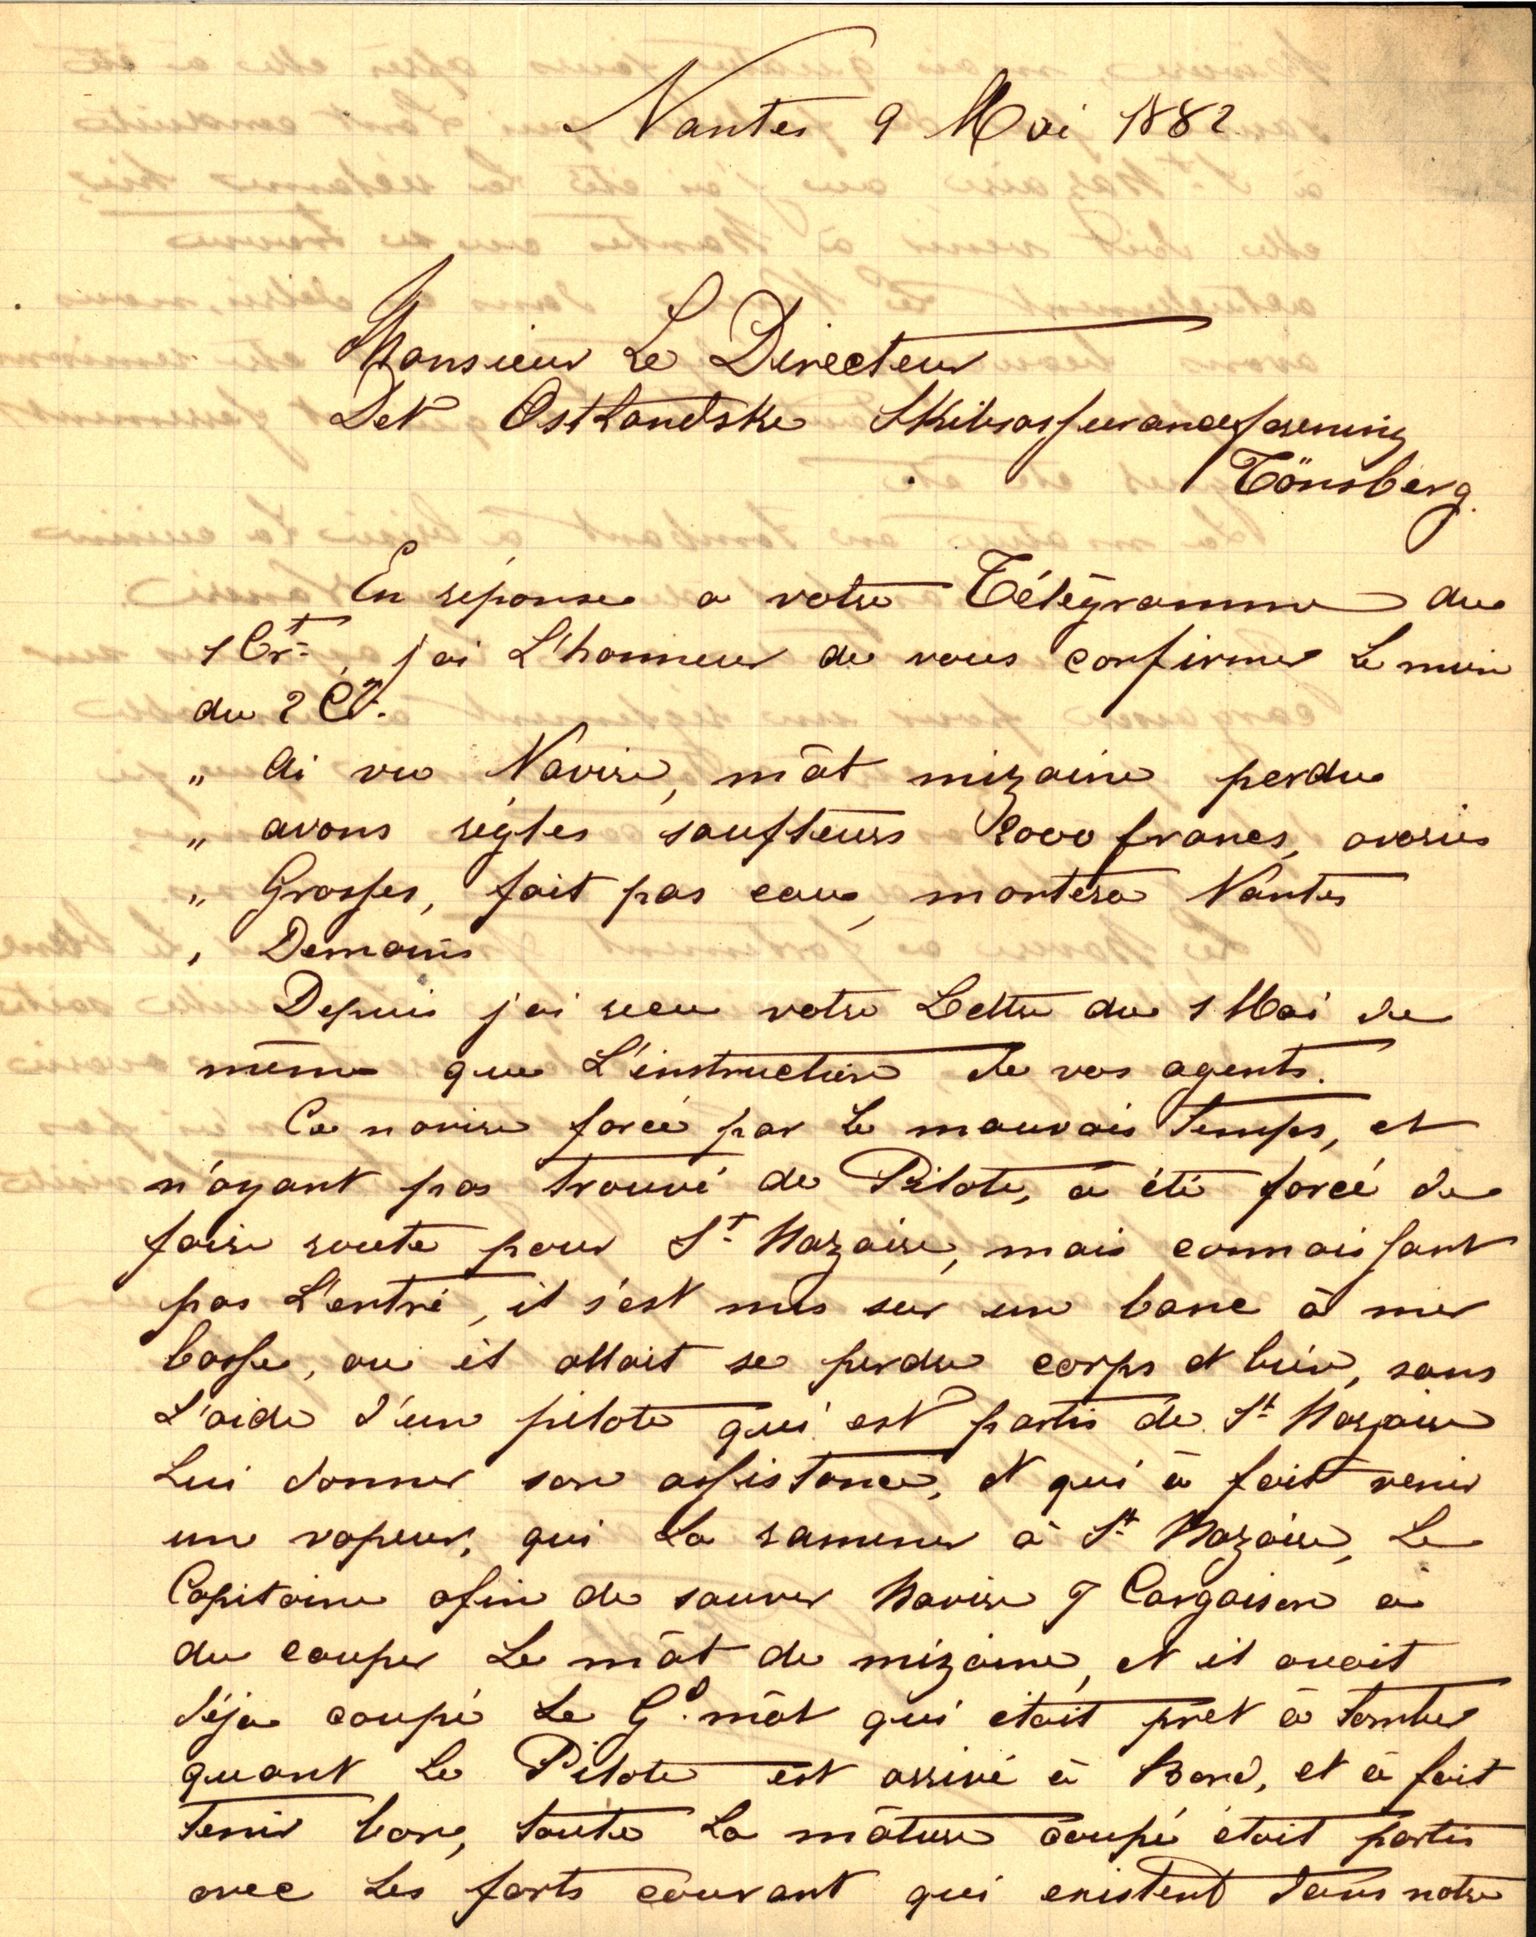 Nantes 9 Mai 1882
Monsieur Le Directeur
Det Ostlandske Skibsassuranceforening
Tönsberg.
En réponse a votre Télégramme du
1 Crt, j'ai L'honneur de vous confirmer Le mien
du 2 Ct.
" Ai vu Navire, mât mizaine perdu
" avons réglés saufteurs 2000 francs, avaries
" Grosses, fait pas eau, montera Nantes
, Demain
Depuis j'ai recu votre Lettre du 1 Mai de
même que L'instruction de vos agents.
Ce navire forcé par Le mauvais Temps, et
n'ayant pas trouvé de Pilote, à été forcé de
faire route pour St Nazaire, mais connaissant
pas L'entré, il s'est mis sur un banc à mer
basse, ou il allait se perdre corps et bien, sans
L'aide d'un pilote qui est partis de St Nazaire
Lui donner son assistance, et qui à fait venir
un vapeur, qui La ramener à St Nazaire, Le
Capitaine afin de sauver Navire & Cargaison à
du couper Le mât de mizaine, et il avait
déja coupé Le Gd mât qui était prêt à tomber
quant Le Pilote est arrivé à Bord, et à fait
Tenir bon, toute La mâture coupé était partis
avec Les forts courant qui existent dans notre